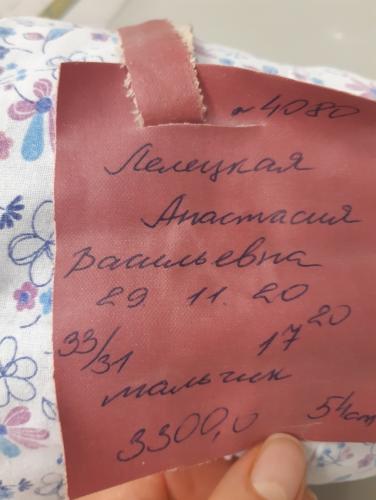 № 4080
Лелецкая
Анастасия
Васильевна
29. 11. 20
33/31 17 20
мальчик
3300,0 54 cm